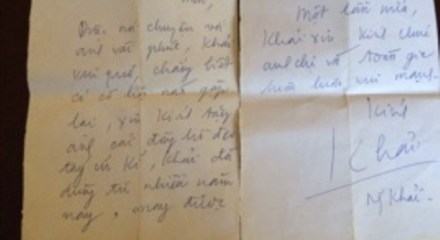 Được nói chuyện với
anh vài phút, Khải
vui quá, chẳng biết
có cơ hội nào gặp
lại, xin kính tặng
anh cái đồng hồ đeo
tay cũ kĩ, Khải đã
dùng từ nhiều năm
nay, mong được
Một lần nữa,
Khải xin kính chúc
anh chị và toàn gia
luôn luôn vui mạnh.
Kính
Khải
Ng Khải.